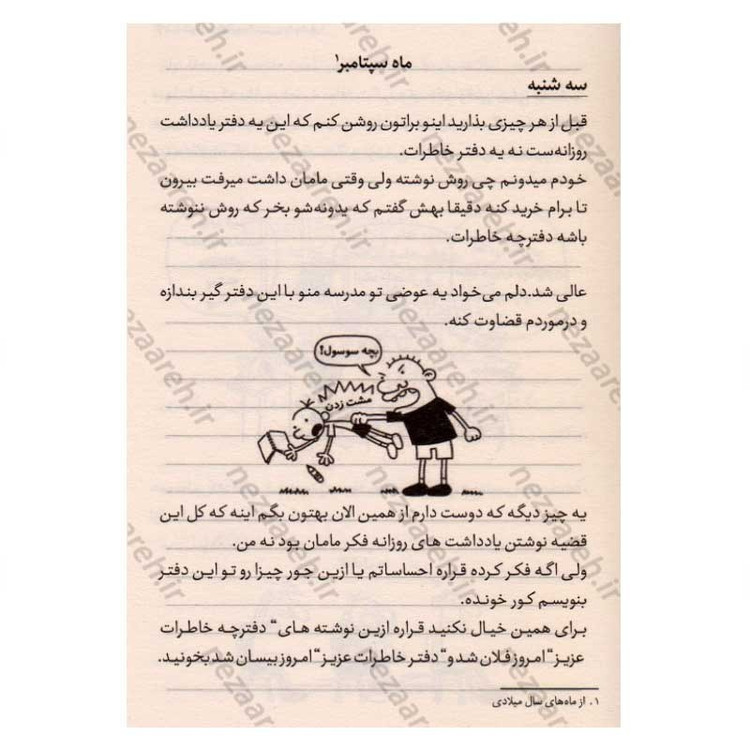 ماه سپتامبر۱
سه شنبه
قبل از هر چیزی بذارید اینو براتون روشن کنم که این یه دفتر یادداشت
روزانه‌ست نه یه دفتر خاطرات.
خودم میدونم چی روش نوشته ولی وقتی مامان داشت میرفت بیرون
تا برام خرید کنه دقیقا بهش گفتم که یدونه‌شو بخر که روش ننوشته
باشه دفترچه خاطرات.
عالی شد.دلم می‌خواد یه عوضی تو مدرسه منو با این دفتر گیر بندازه
و درموردم قضاوت کنه.
بچه سوسول!
مشت زدن
یه چیز دیگه که دوست دارم از همین الان بهتون بگم اینه که کل این
قضیه نوشتن یادداشت های روزانه فکر مامان بود نه من.
ولی اگه فکر کرده قراره احساساتم یا ازین جور چیزا رو تو این دفتر
بنویسم کور خونده.
برای همین خیال نکنید قراره ازین نوشته های“ دفترچه خاطرات
عزیز“ امروز فلان شد و“ دفتر خاطرات عزیز“ امروز بیسان شد بخونید.
۱. از ماه‌های سال میلادی
nezaareh.ir